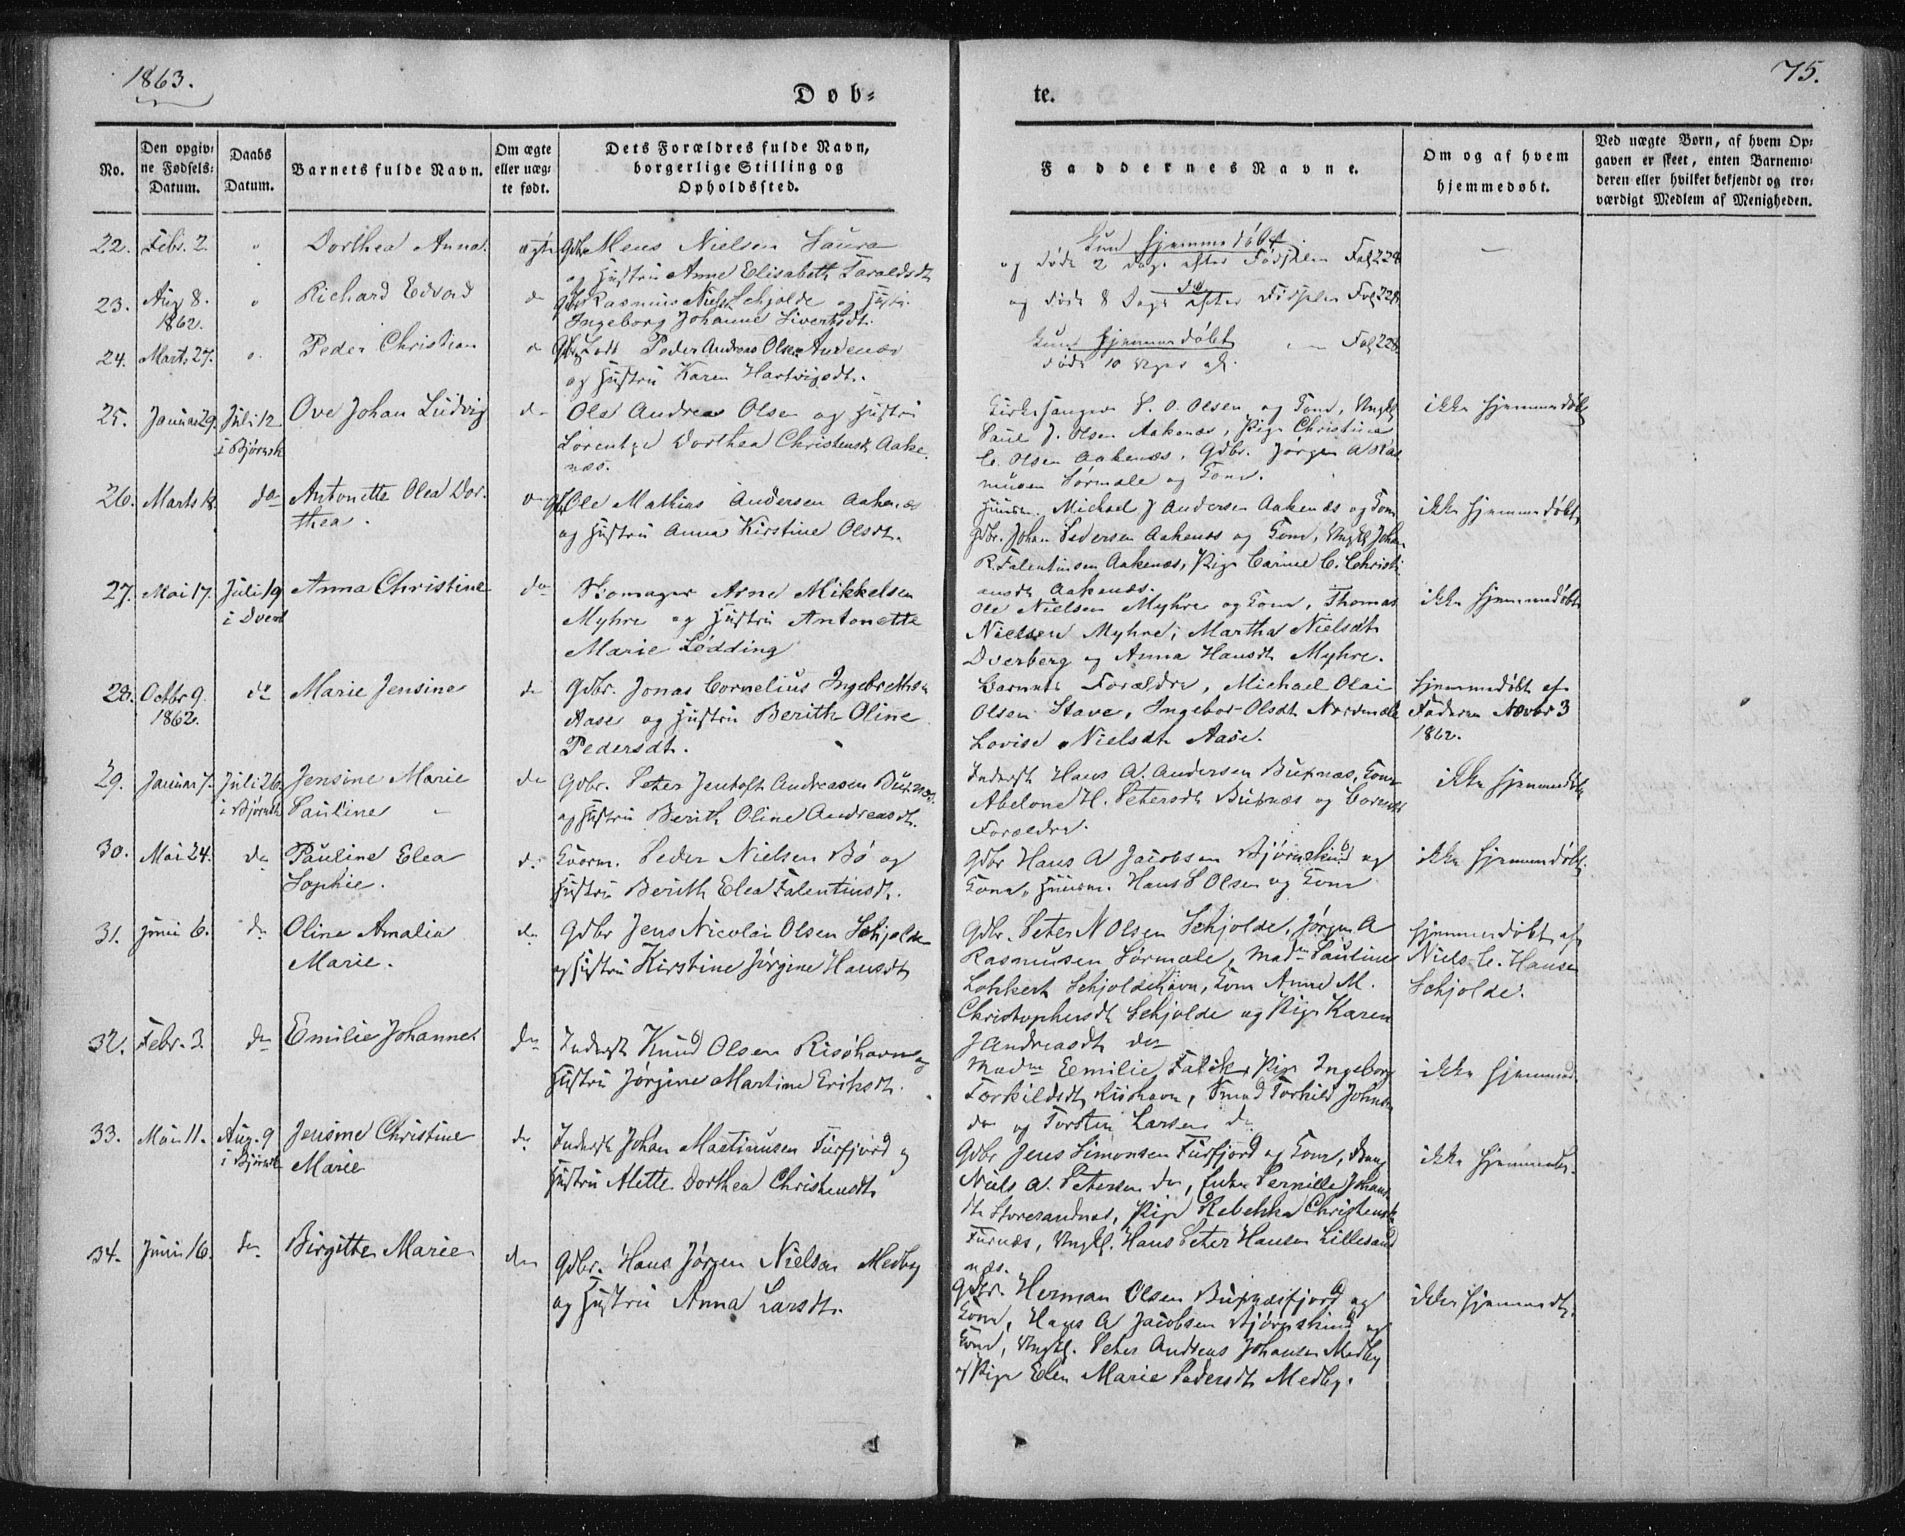 1863.
75.
Døb-
te.
No.
Den opgiv-
ne Fødsels-
Datum.
Daabs
Datum.
Barnets fulde Navn.
Om ægte
eller uæg-
te født.
Dets Forældres fulde Navn,
borgerlige Stilling og
Opholdssted.
Faddernes Navne.
Om og af hvem
hjemmedøbt.
Ved uægte Børn, af hvem Op-
gaven er skeet, enten Barnemo-
deren eller hvilket bekjendt og tro-
værdigt Medlem af Menigheden.
22. Febr. 2. " Dorthea Anna. ægte Gdbr. Mens Nielsen Saura
og Hustru Anne Elisabeth Faraldsdt.
Kun hjemmedøbt
og døde 2 Dage efter Fødselen Fol 228
23. Aug 8. " Richard Edvard do Gdbr Rasmus Niels. Schjolde og Hustr.
1862. Ingeborg Johanne Sivertsdt.
do
og døde 8 Dage efter Fødselen Fol 228
24. Marts 27. " Peder Christian do Peder Andreas Olsen Andenæs
og Hustru Karen Hartvigsdt.
Kun hjemmedøbt Fol 228
døde 10 Uger gl.
25. Januar 29. Juli 12 Ove Johan Ludvig do Ole Andreas Olsen og Hustru
i Bjørnsk Lorentze Dorthea Christensdt. Aake-
næs.
Kirkesanger S. O. Olsen og Kone, Ungk.
Paul J. Olsen Aakenæs, Pige Christina
C. Olsen Aakenæs, Gdbr. Jørgen A Ras
musen Sørmæle og Kone.
ikke hjemmedøbt
26. Marts 18. do Antonette Olea Dor- do Gdb. Ole Mathias Andersen Aakenæs
thea. og Hustru Anna Kirstine Olsdt.
Huusm. Michael J Andersen Aakenæs og Kone
Gdbr. Johan Pedersen Aakenæs og Kone, Ungk. Johan
R. Falentinsen Aakenæs, Pige Carine C. Christi
ansdt. Aakenæs.
ikke hjemmedøbt
27. Mai 17. Juli 19 Anna Christine do Skomager Arne Mikkelsen
i Dverb Myhre og Hustru Antonette
Marie Lødding
Ole Nielsen Myhre og Kone, Thomas
Nielsen Myhre, Martha Nielsdt.
Dverberg og Anna Hansdt. Myhre.
ikke hjemmedøbt
28. Octbr 9. do Marie Jensine do Gdbr. Jonas Cornelius Ingebrethsen
1862. Aase og Hustru Berith Oline
Pedersdt.
Barnets Forældre, Michael Olai
Olsen Stave, Ingebor Olsdt. Nordmæle
Lovise Nielsdt. Aase.
hjemmedøbt af
Faderen Novbr 3
1862.
29. Januar 7. Juli 26 Jensine Marie do Gdbr. Peter Jentoft Andreasen Buknæs
i Bjørnsk Pauline og Hustru Berith Oline Andreasdt.
Inderst Hans A. Andersen Buknæs, Kone
Abelone H. Petersdt. Buknæs og Barnets
Forældre.
ikke hjemmedøbt
30. Mai 24. do Pauline Elea do Qvorm. Peder Nielsen Bø og
Sophie. Hustru Berith Elea Falentinsdt.
Gdbr Hans A Jacobsen Bjørnskind og
Kone, Huusm. Hans S Olsen og Kone
ikke hjemmedøbt.
31. Juni 6. do Oline Amalia do Gdbr Jens Nicolai Olsen Schjolde
Marie. og Hustru Kirstine Jørgine Hansdt.
Gdbr. Peter N Olsen Schjolde, Jørgen A
Rasmusen Sørmæle, Madm Pauline
Lokkert Schjoldehavn, Kone Anne M.
Christophersdt. Schjolde og Pige Karen
J Andreasdt. do
hjemmedøbt af
Niels C. Hansen
Schjolde.
32. Febr. 3. do Emilie Johanne do Inderst Knud Olsen Risøhavn og
Hustru Jørgine Martine Eriksdt.
Madm Emilie Falck, Pige Ingeborg
Torkildsdt. Risøhavn, Smed Torkild Johnsen
do og Torstin Larsen do
ikke hjemmed.
33. Mai 11. Aug. 9 Jensine Christine do Inderst Johan Martinusen Furfjord og
i Bjørnsk Marie Hustru Alette Dorthea Christensdt.
Gdbr Jens Simonsen Furfjord og Kone, Dreng
Niels A. Petersen do, Enke Pernille Johans
dt. Storesandnæs, Pige Rebekka Christensdt.
Furnæs, Ungk. Hans Peter Hansen Lillesand
næs.
ikke hjemmedøb.
34. Juni 16. do Birgitte Marie do Gdbr. Hans Jørgen Nielsen Medby
og Hustru Anna Larsdt.
Gdbr. Herman Olsen Buknæsfjord og
Kone, Hans A Jacobsen Bjørnskind og
Kone, Ungk. Peter Andreas Johansen Medby
og Pige Elen Marie Pedersdt. Medby.
ikke hjemmedt.